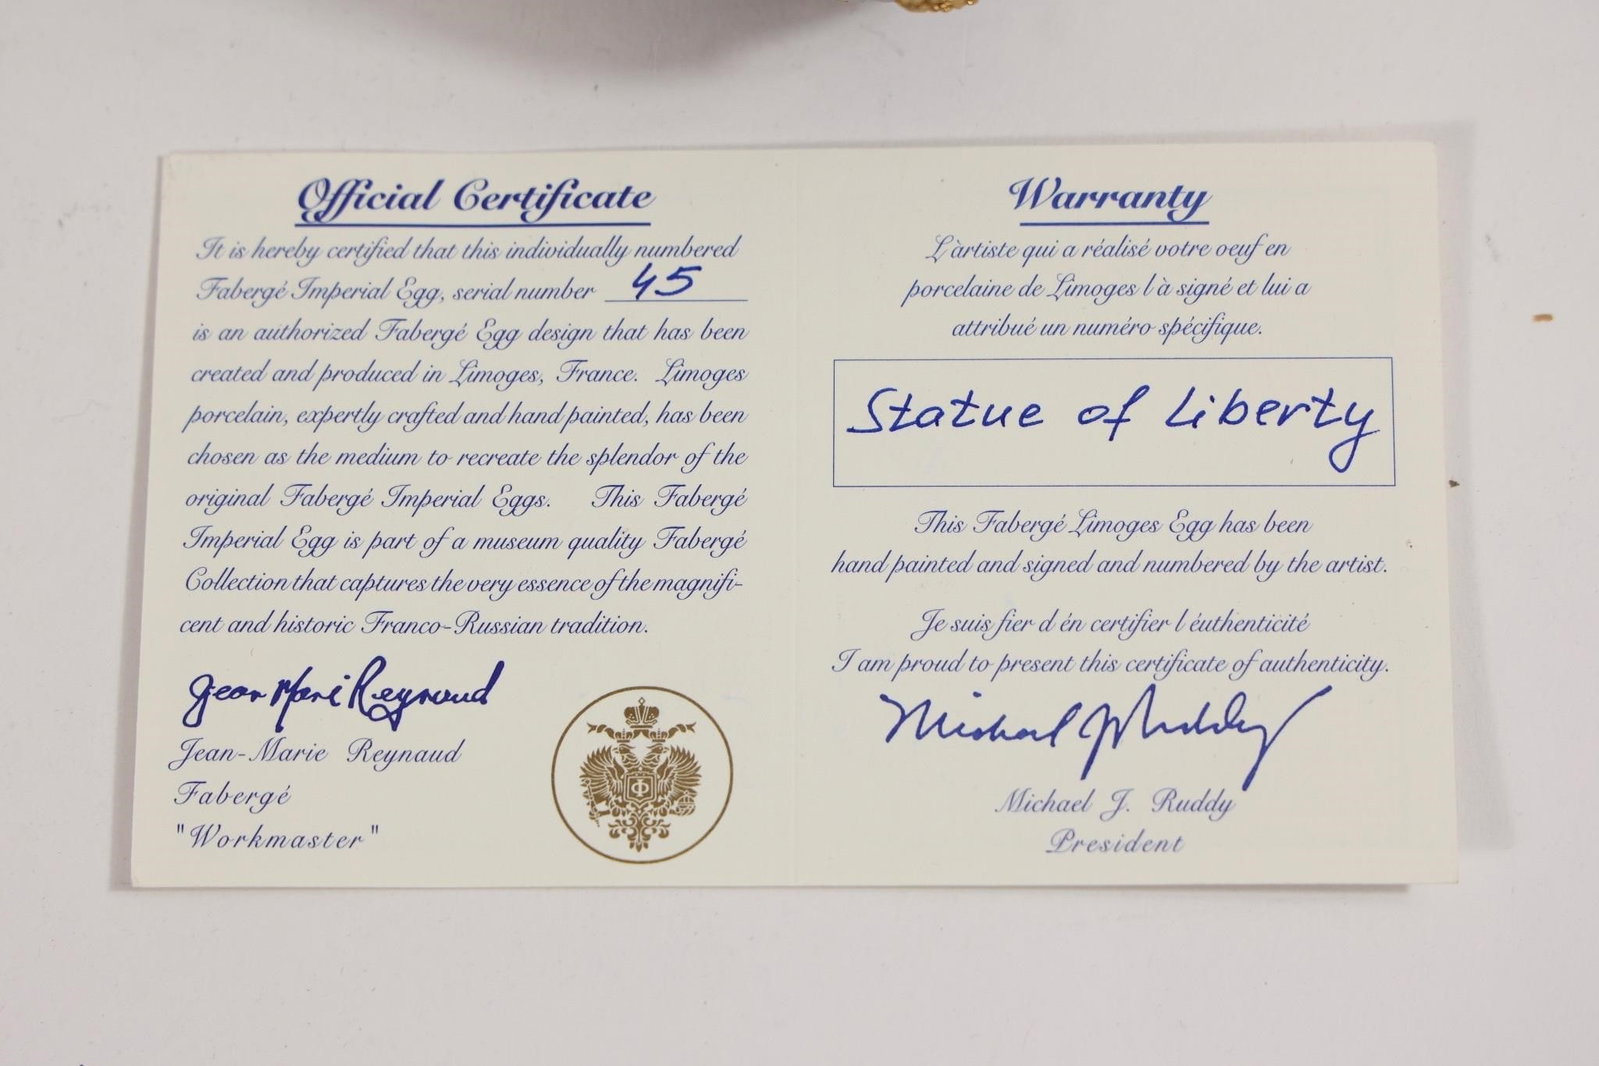 Official Certificate
It is hereby certified that this individually numbered
Fabergé Imperial Egg, serial number 45
is an authorized Fabergé Egg design that has been
created and produced in Limoges, France. Limoges
porcelain, expertly crafted and hand painted, has been
chosen as the medium to recreate the splendor of the
original Fabergé Imperial Eggs. This Fabergé
Imperial Egg is part of a museum quality Fabergé
Collection that captures the very essence of the magnifi-
cent and historic Franco-Russian tradition.
Jean Marie Reynaud
Jean-Marie Reynaud
Fabergé
"Workmaster"
Ф
Warranty
L'àrtiste qui a réalisé votre oeuf en
porcelaine de Limoges l à signé et lui a
attribué un numéro spécifique.
Statue of Liberty
This Fabergé Limoges Egg has been
hand painted and signed and numbered by the artist.
Je suis fier d én certifier l éuthenticité
I am proud to present this certificate of authenticity.
Michael J Ruddy
Michael J. Ruddy
President